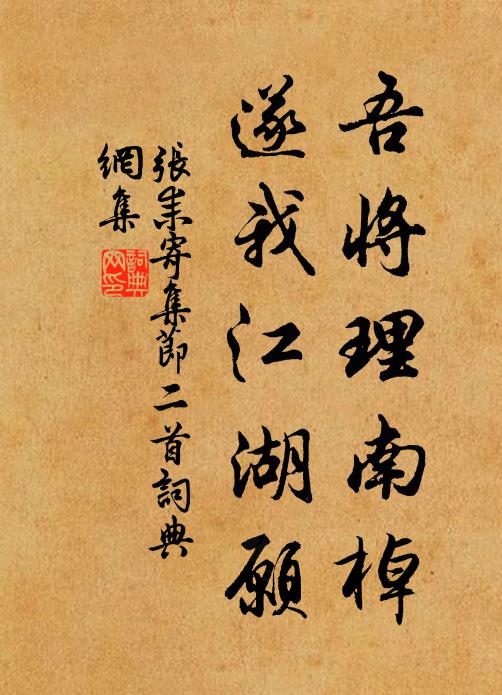 吾將理南棹
遂我江湖願
張耒寄集節二首詞典
網集
詞典
網印